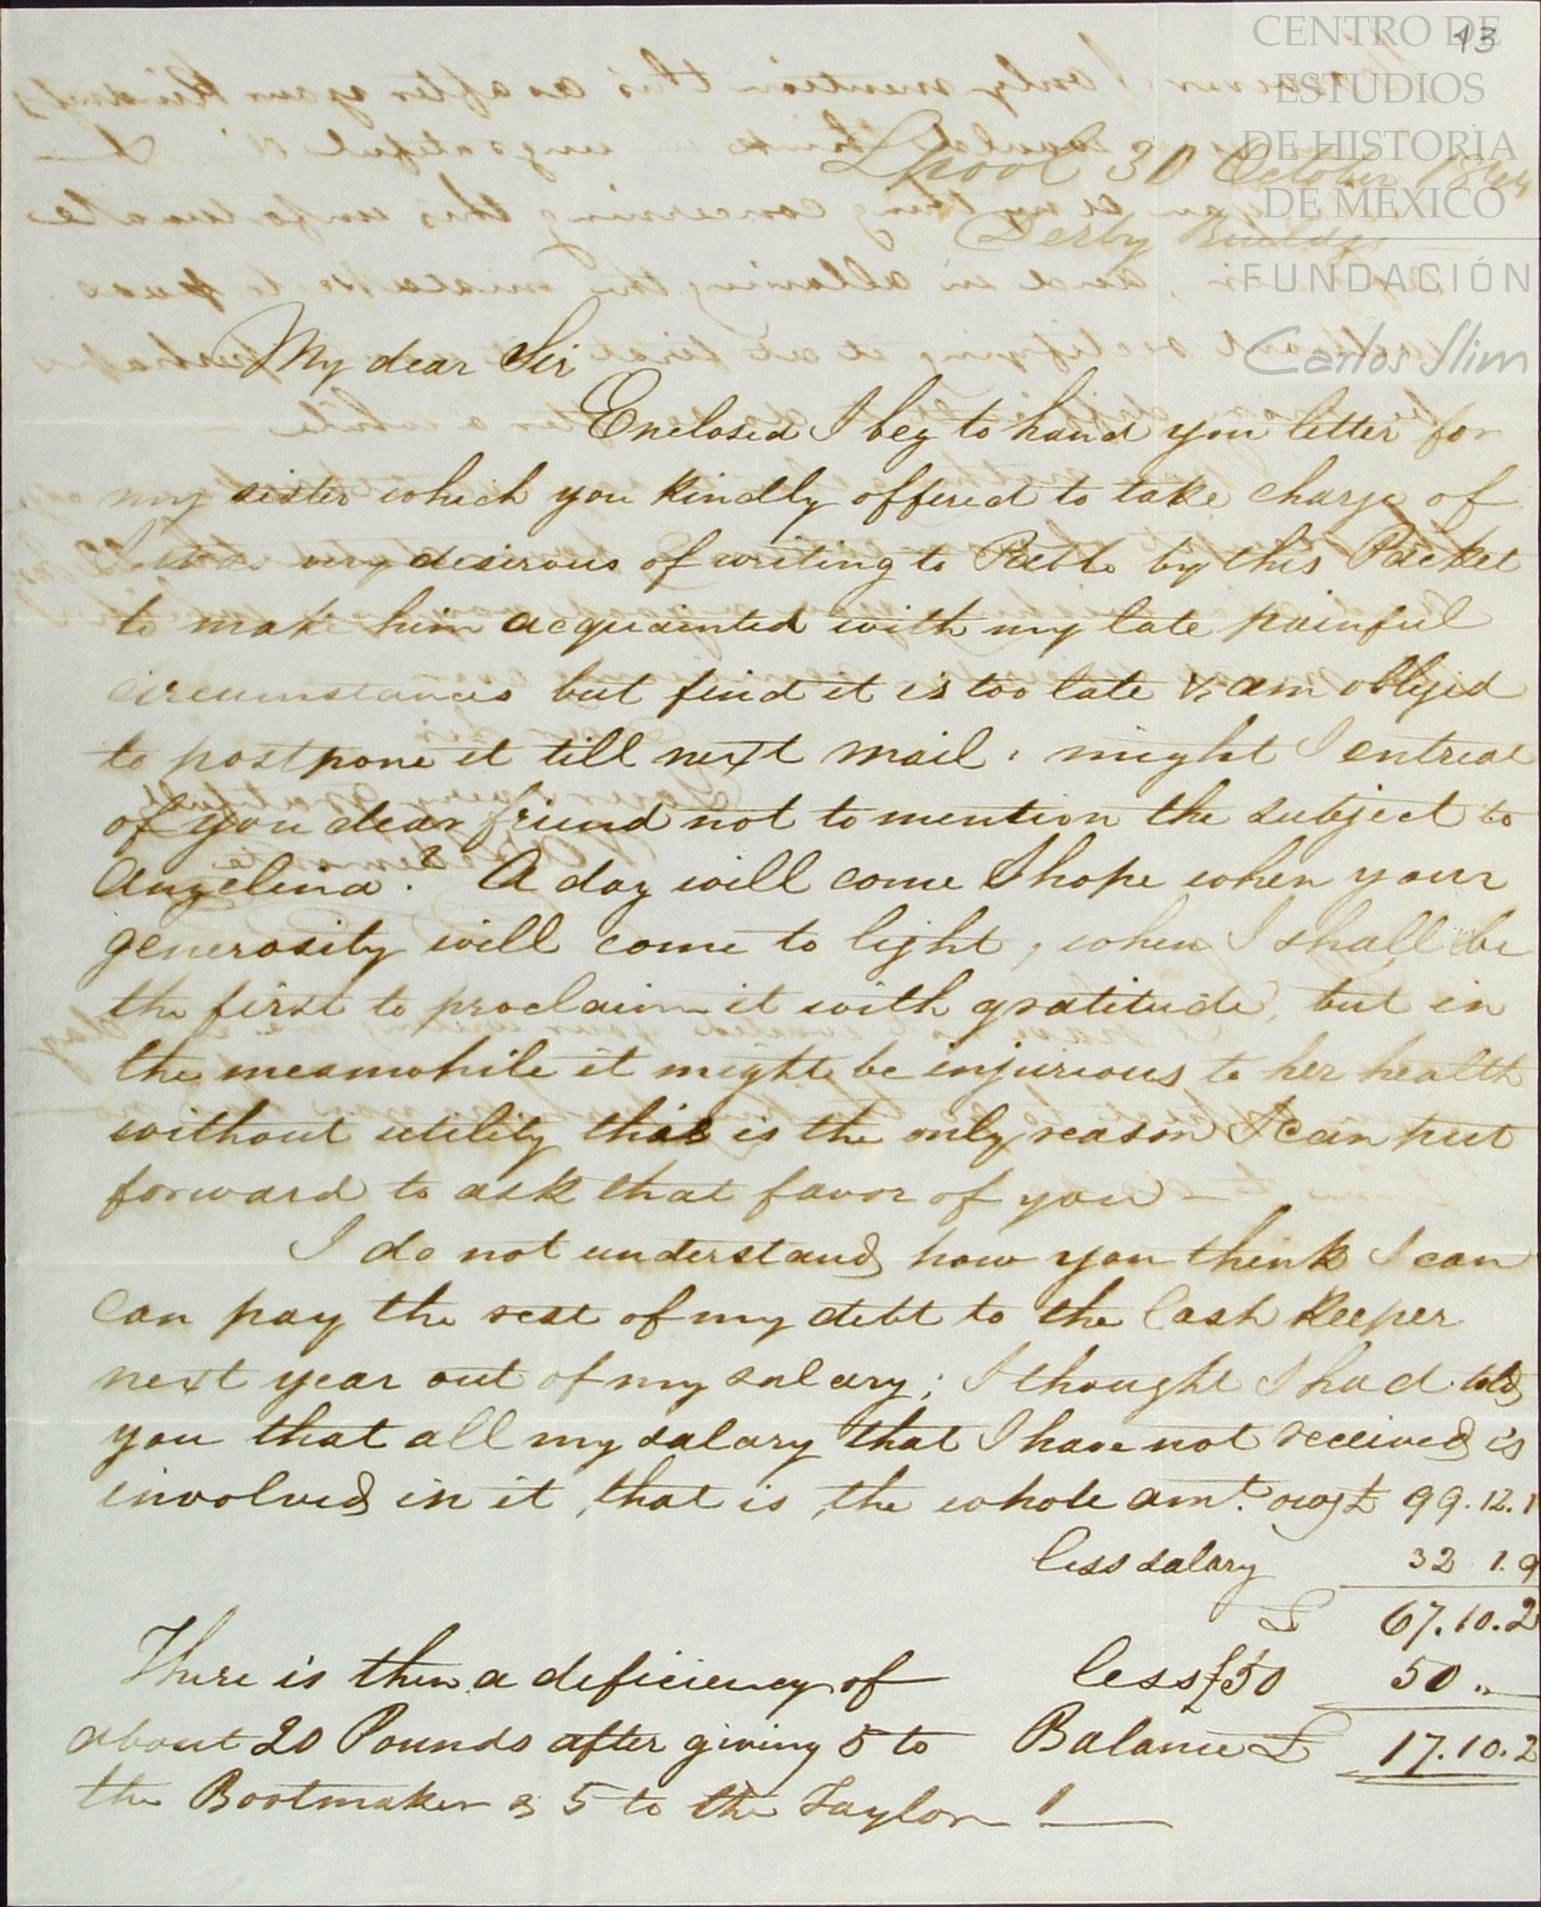 CENTRO DE
ESTUDIOS
DE HISTORIA
DE MÉXICO
FUNDACIÓN
Carlos Slim
13
Lpool 30 October 1844
Derby Buildgs
My dear Sir
Enclosed I beg to hand you letter for
my sister which you kindly offered to take charge of
I was very desirous of writing to Pablo by this Packet
to make him acquainted with my late painful
circumstances but find it is too late & am obliged
to postpone it till next mail: might I entreat
of you dear friend not to mention the subject to
Angelina? A day will come I hope when your
generosity will come to light, when I shall be
the first to proclaim it with gratitude, but in
the meanwhile it might be injurious to her health
without utility this is the only reason I can put
forward to ask that favor of you —
I do not understand how you think I can
can pay the rest of my debt to the Cash Keeper
next year out of my salary; I thought I had told
you that all my salary that I have not received is
involved in it, that is, the whole amt. owg £ 99.12.1
less salary 32 1.9
£ 67.10.2
There is then a deficiency of less £50 50 "
about 20 Pounds after giving 5 to Balance £ 17.10.2
the Bootmaker & 5 to the Taylor!